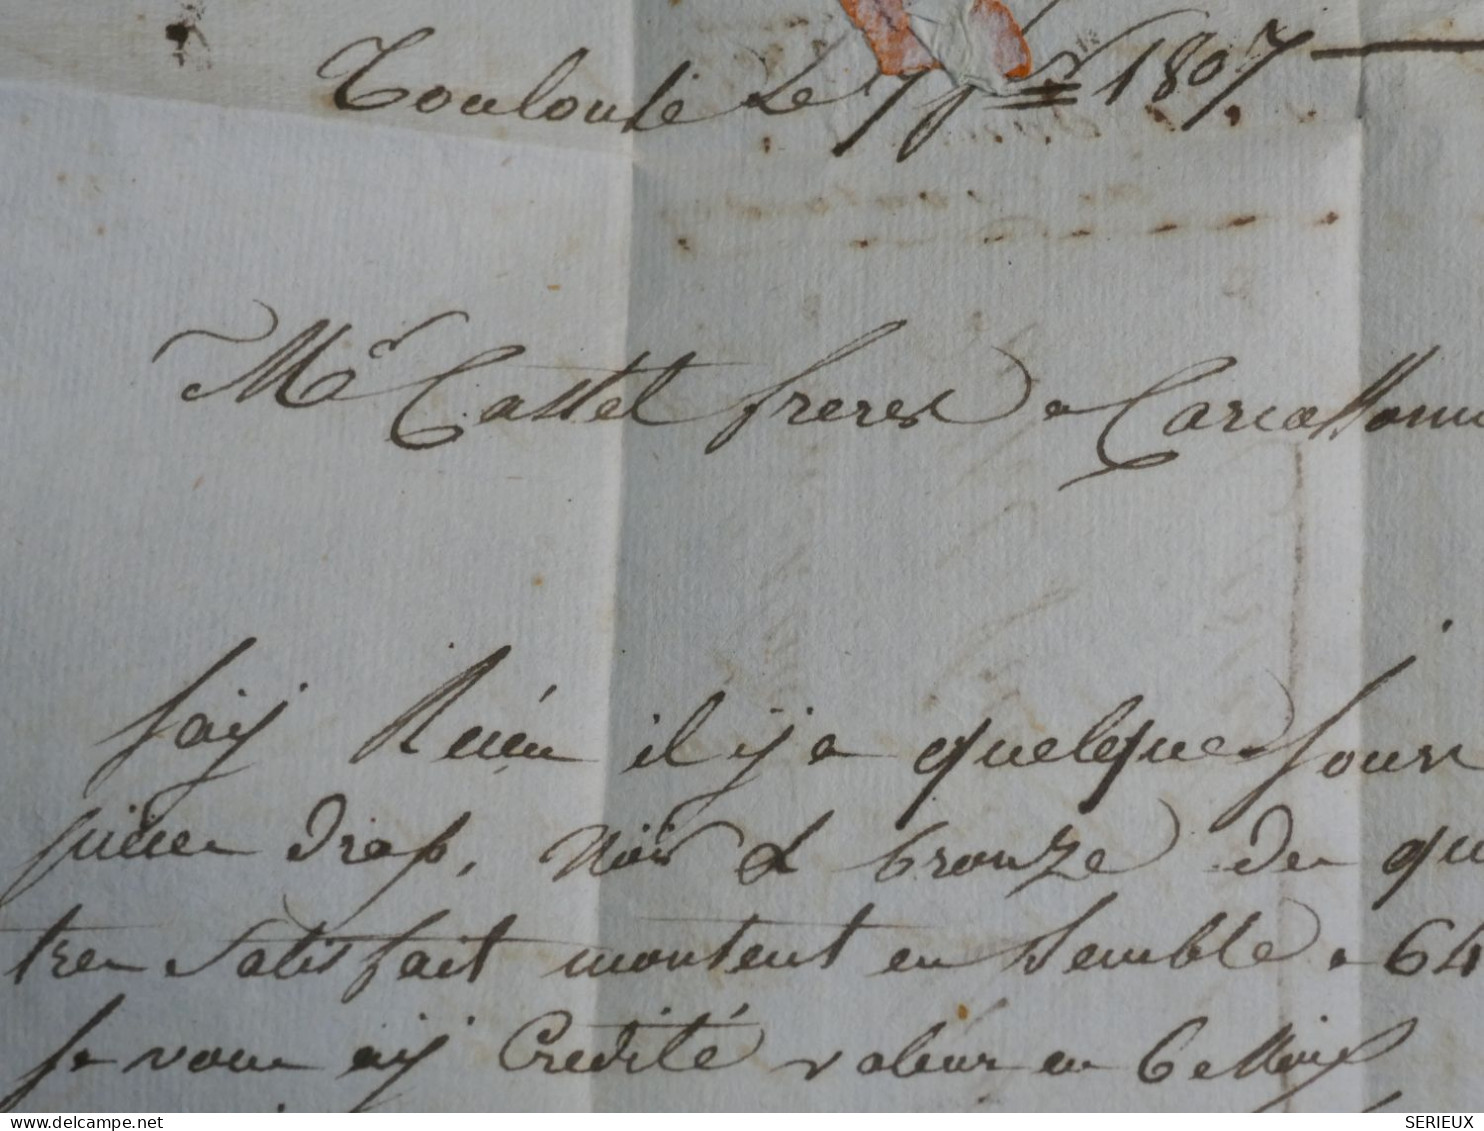 Toulouse Le 7 1807
Mrs Castel freres a Carcassonne
J'ay Recu il y a quelque Jours
pieces Drap, Noir & bronze de qu
tres Satisfait montent en Semble a 64
Je vous ay Credité valeur en 6 Mois
delcampe.net
SERIEUX